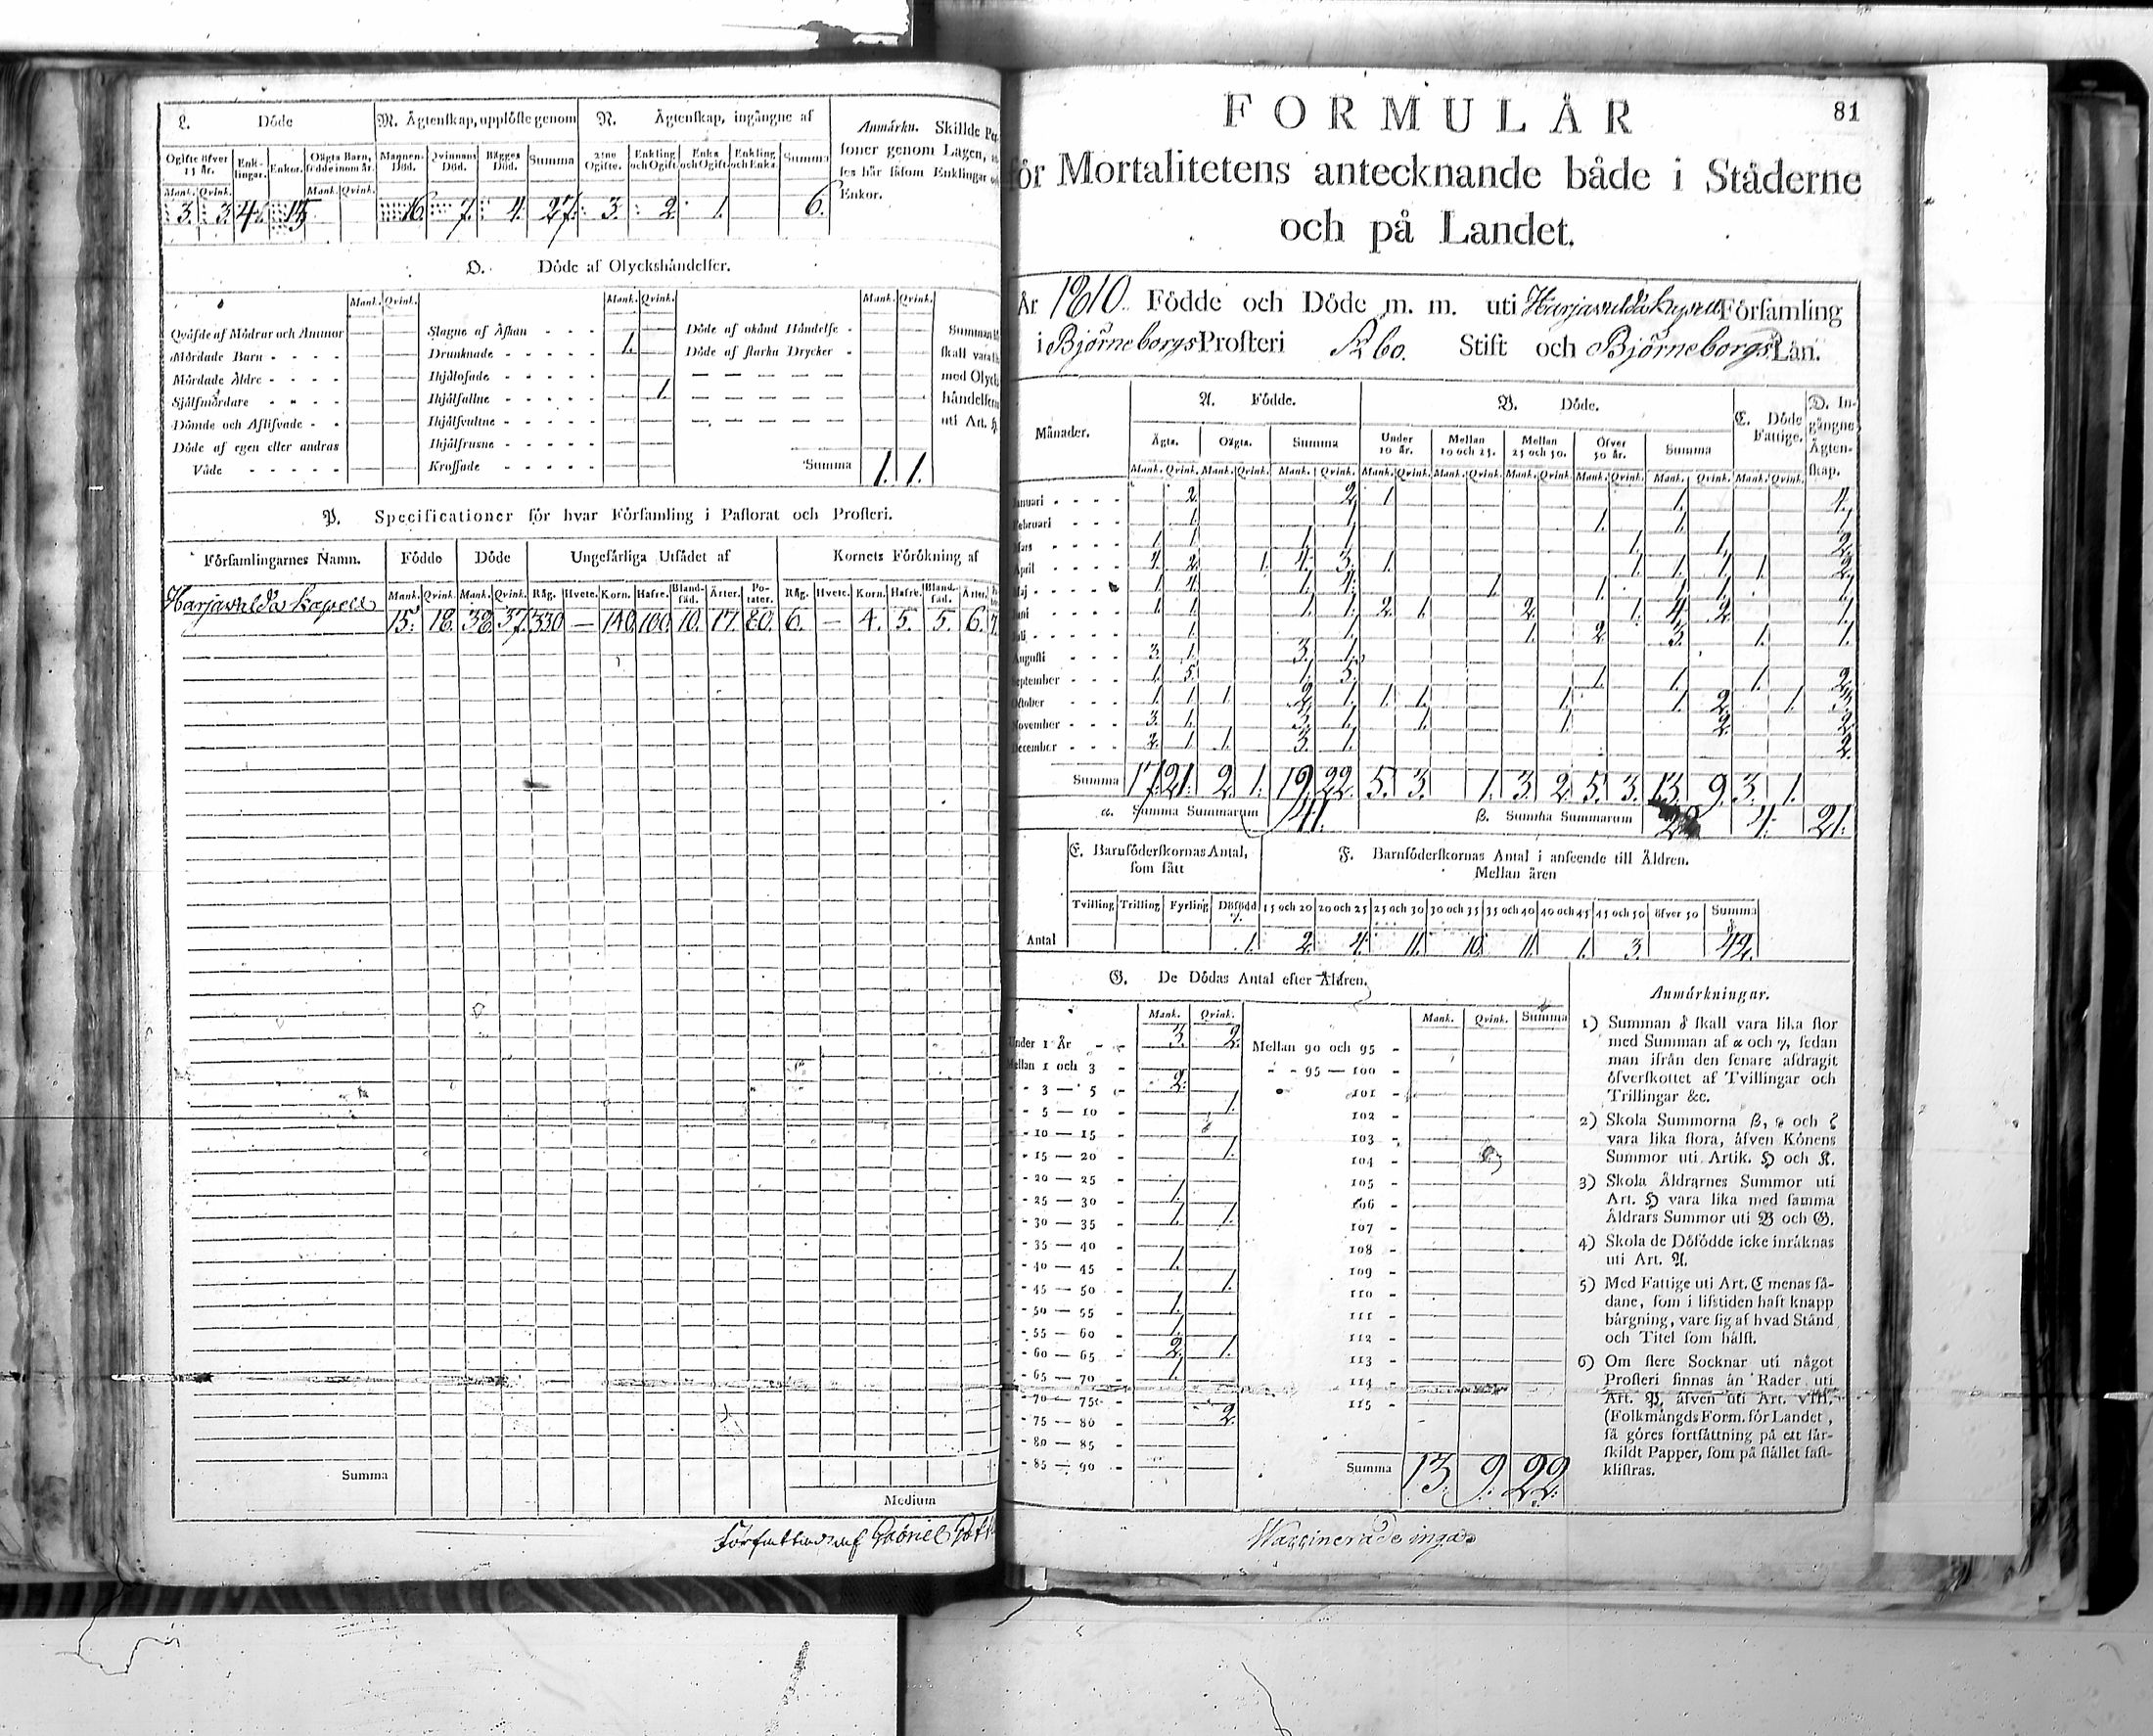 L. Döde
M. Ägtenskap, upplöste genom
N. Ägtenskap, ingångne af
Anmärkn. Skillde Per-
soner genom Lagen,
les här såsom Enklingar
Enkor.
Ogifte öfver 15 år. Enk-lingar. Enkor. Oägta Barn, födde inom år. Mannens Död. Qvinnans Död. Bägges Död. Summa 2:ne Ogifte. Enkling och Ogift. Enka och Ogift. Enkling och Enka. Summa
Mank. Qvink. Mank. Qvink.
3. 3. 4. 15 16 7. 4. 27. 3. 2. 1. 6.
O. Döde af Olyckshändelser.
Mank. Qvink. Mank. Qvink. Mank. Qvink.
Qväfde af Mödrar och Ammor Slagne af Åskan - - - Döde af okänd Händelse -
Mördade Barn - - - - Drunknade - - - - - 1. Döde af starka Drycker -
Mördade Äldre - - - - Ihjälosade - - - - -
Sjålfmördare - - - - Ihjälfallne - - - - 1.
Dömde och Aflifvade - - Ihjälsvultne - - - -
Döde af egen eller andras Ihjälfrusne - - - -
Våde - - - - - Krossade - - - - - Summa 1. 1.
Summan
skall vara
med Olyck
händelserna
uti Art.
P. Specificationer för hvar Församling i Pastorat och Prosteri.
Församlingarnes Namn. Födde Döde Ungefärliga Utsådet af Kornets Förökning af
Mank. Qvink. Mank. Qvink. Råg. Hvete. Korn. Hafre. Bland-säd. Ärter. Po-tater. Råg. Hvete. Korn. Hafre. Bland-säd. Ärter.
Harjavalda kapell 15. 18. 38. 37. 330 — 140. 100. 10. 17. 80. 6. — 4. 5. 5. 6. 7.
Summa
Medium
Författad af Gabriel
81
FORMULÄR
för Mortalitetens antecknande både i Städerne
och på Landet.
År 1810. Födde och Döde m. m. uti Harjavalda kapell Församling
i Björneborgs Prosteri Åbo. Stift och Björneborgs Län.
Månader. A. Födde. B. Döde. C. Döde Fattige. D. In-gångne Ägten-skap.
Ägta. Oägta. Summa Under 10 år. Mellan 10 och 25. Mellan 25 och 50. Öfver 50 år. Summa
Mank. Qvink. Mank. Qvink. Mank. Qvink. Mank. Qvink. Mank. Qvink. Mank. Qvink. Mank. Qvink. Mank. Qvink. Mank. Qvink.
Januari - - - - 2. 2. 1. 1. 4.
Februari - - - 1. 1. 1. 1. 1.
Mars - - - - 1. 1. 1. 1. 1. 1. 2.
April - - - - 4. 2. 1. 4. 3. 1. 1. 1. 1. 1. 2.
Maj - - - - 1. 4. 1. 4. 1. 1. 1. 1. 1.
Juni - - - - 1. 1. 1. 1. 2. 1. 2. 1. 4. 2. 1.
Juli - - - - 1. 1. 1. 2. 3. 1. 1.
Augusti - - - 3. 1. 3. 1.
September - - - 1. 5. 1. 5. 1. 1. 1. 2.
October - - - 1. 1. 1. 2. 1. 1. 1. 1. 1. 2. 1. 3.
November - - - 3. 1. 3. 1. 1. 1. 2. 2.
December - - - 2. 1. 1. 3. 1. 2.
Summa 17. 21. 2. 1. 19. 22. 5. 3. 1. 3 2 5. 3. 13. 9. 3. 1.
α. Summa Summarum 41. β. Summa Summarum 22 4. 21.
E. Barnsöderskornas Antal, som fått
F. Barnsöderskornas Antal i anseende till Åldren.
Mellan åren
Tvilling Trilling Fyrling Dödfödd 15 och 20 20 och 25 25 och 30 30 och 35 35 och 40 40 och 45 45 och 50 öfver 50 Summa
Antal 1. 2. 4. 11. 10. 11. 1. 3. 42.
G. De Dödas Antal efter Åldren.
Mank. Qvink. Mank. Qvink. Summa
Under 1 År - - 3. 2. Mellan 90 och 95 -
Mellan 1 och 3 - - - 95 — 100 -
- - 3 — 5 - 2. 101 -
- - 5 — 10 - 1. 102 -
- - 10 — 15 - 103 -
- - 15 — 20 - 1. 104 -
- - 20 — 25 - 105 -
- - 25 — 30 - 1. 106 -
- - 30 — 35 - 1. 1. 107 -
- - 35 — 40 - 108 -
- - 40 — 45 - 1. 109 -
- - 45 — 50 - 1. 110 -
- - 50 — 55 - 1. 111 -
- - 55 — 60 - 1. 112 -
- - 60 — 65 - 2. 1. 113 -
- - 65 — 70 - 1. 114 -
- - 70 — 75 - 115 -
- - 75 — 80 - 2.
- - 80 — 85 -
- - 85 — 90 - Summa 13. 9. 22.
Anmärkningar.
1) Summan δ skall vara lika stor
med Summan af α och γ, sedan
man ifrån den senare afdragit
öfverskottet af Tvillingar och
Trillingar &c.
2) Skola Summorna β, ε och ζ
vara lika stora, äfven Könens
Summor uti Artik. H och K.
3) Skola Åldrarnes Summor uti
Art. H vara lika med samma
Åldrars Summor uti B och G.
4) Skola de Döfödde icke inräknas
uti Art. A.
5) Med Fattige uti Art. C menas så-
dane, som i lifstiden haft knapp
bärgning, vare sig af hvad Stånd
och Titel som hälst.
6) Om flere Socknar uti något
Prosteri finnas än Rader uti
Art. P, äfven uti Art. VIII,
(Folkmängds Form. för Landet,
så göres fortsättning på ett sär-
skildt Papper, som på stället fast-
klistras.
Waccinerade inga